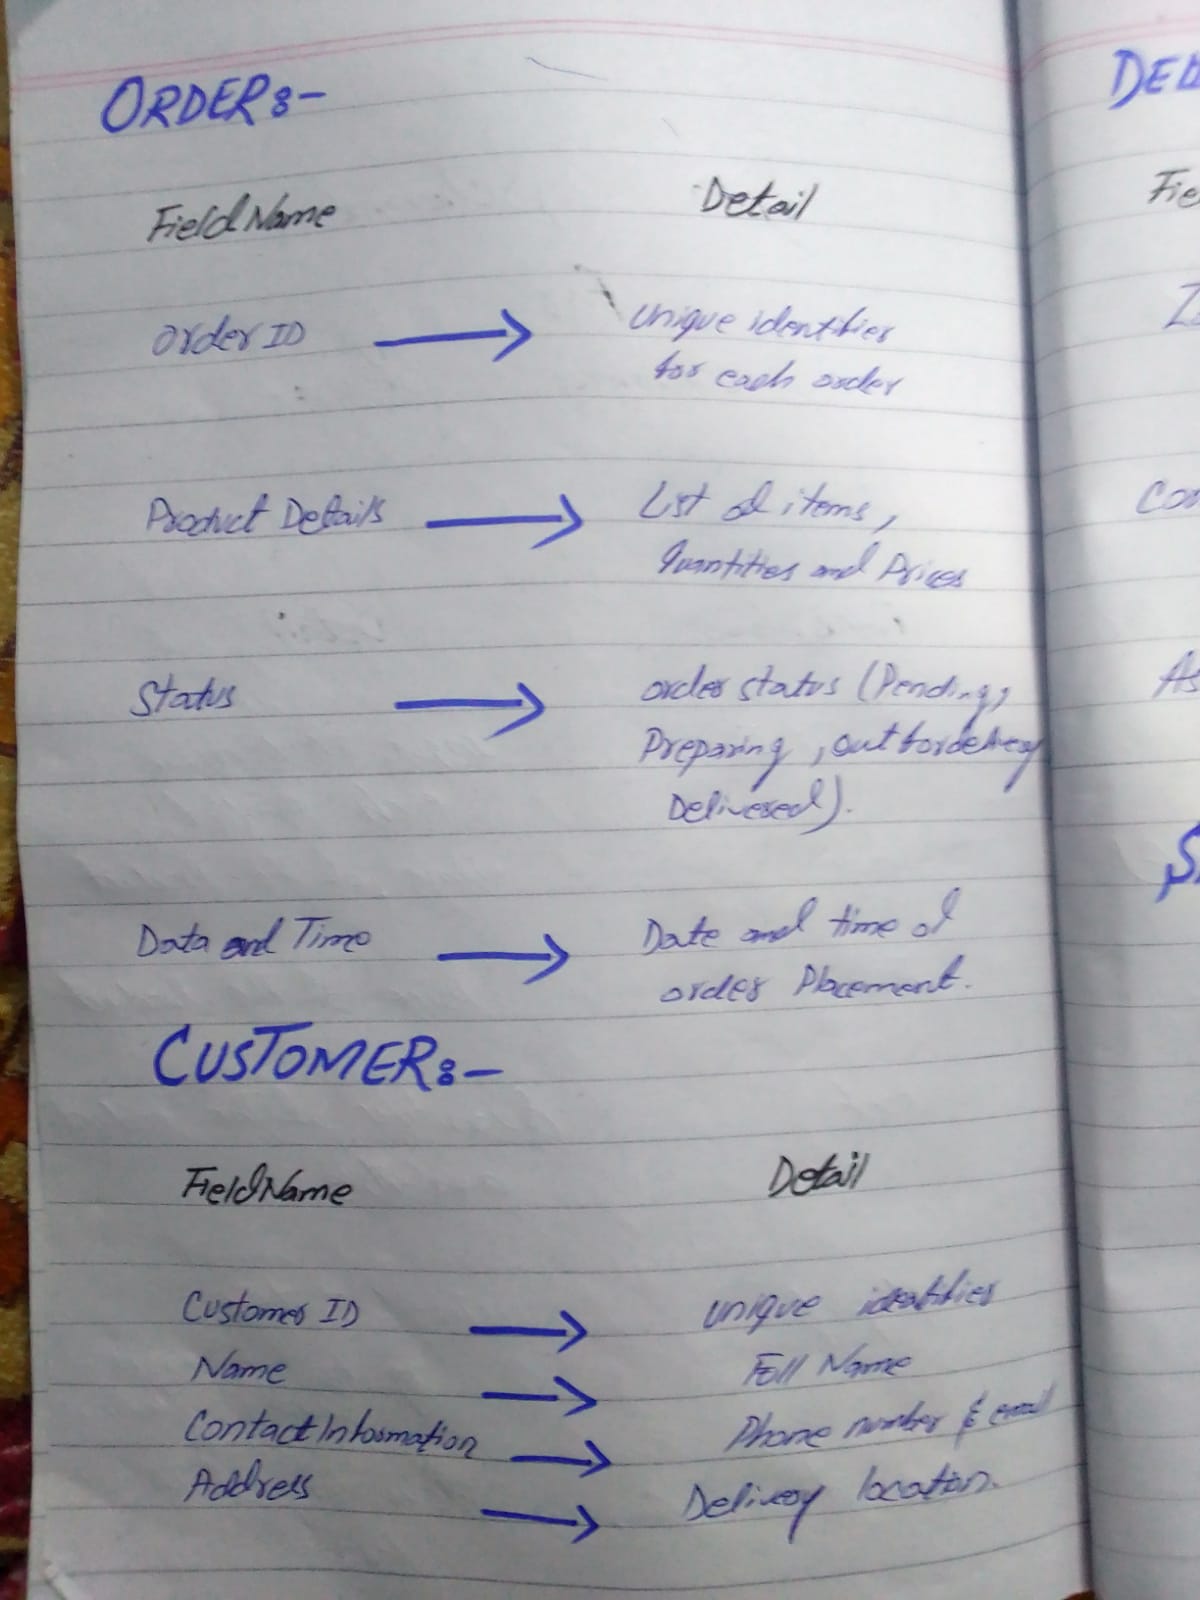 ORDER:-
Field Name Detail
Order ID → unique identifier
for each order
Product Details → List of items,
Quantities and Prices
Status → order status (Pending,
Preparing, out for delivery
Delivered).
Data and Time → Date and time of
order Placement.
CUSTOMER:-
Field Name Detail
Customer ID → unique identifier
Name → Full Name
Contact Information → Phone number & email
Address → Delivery location.